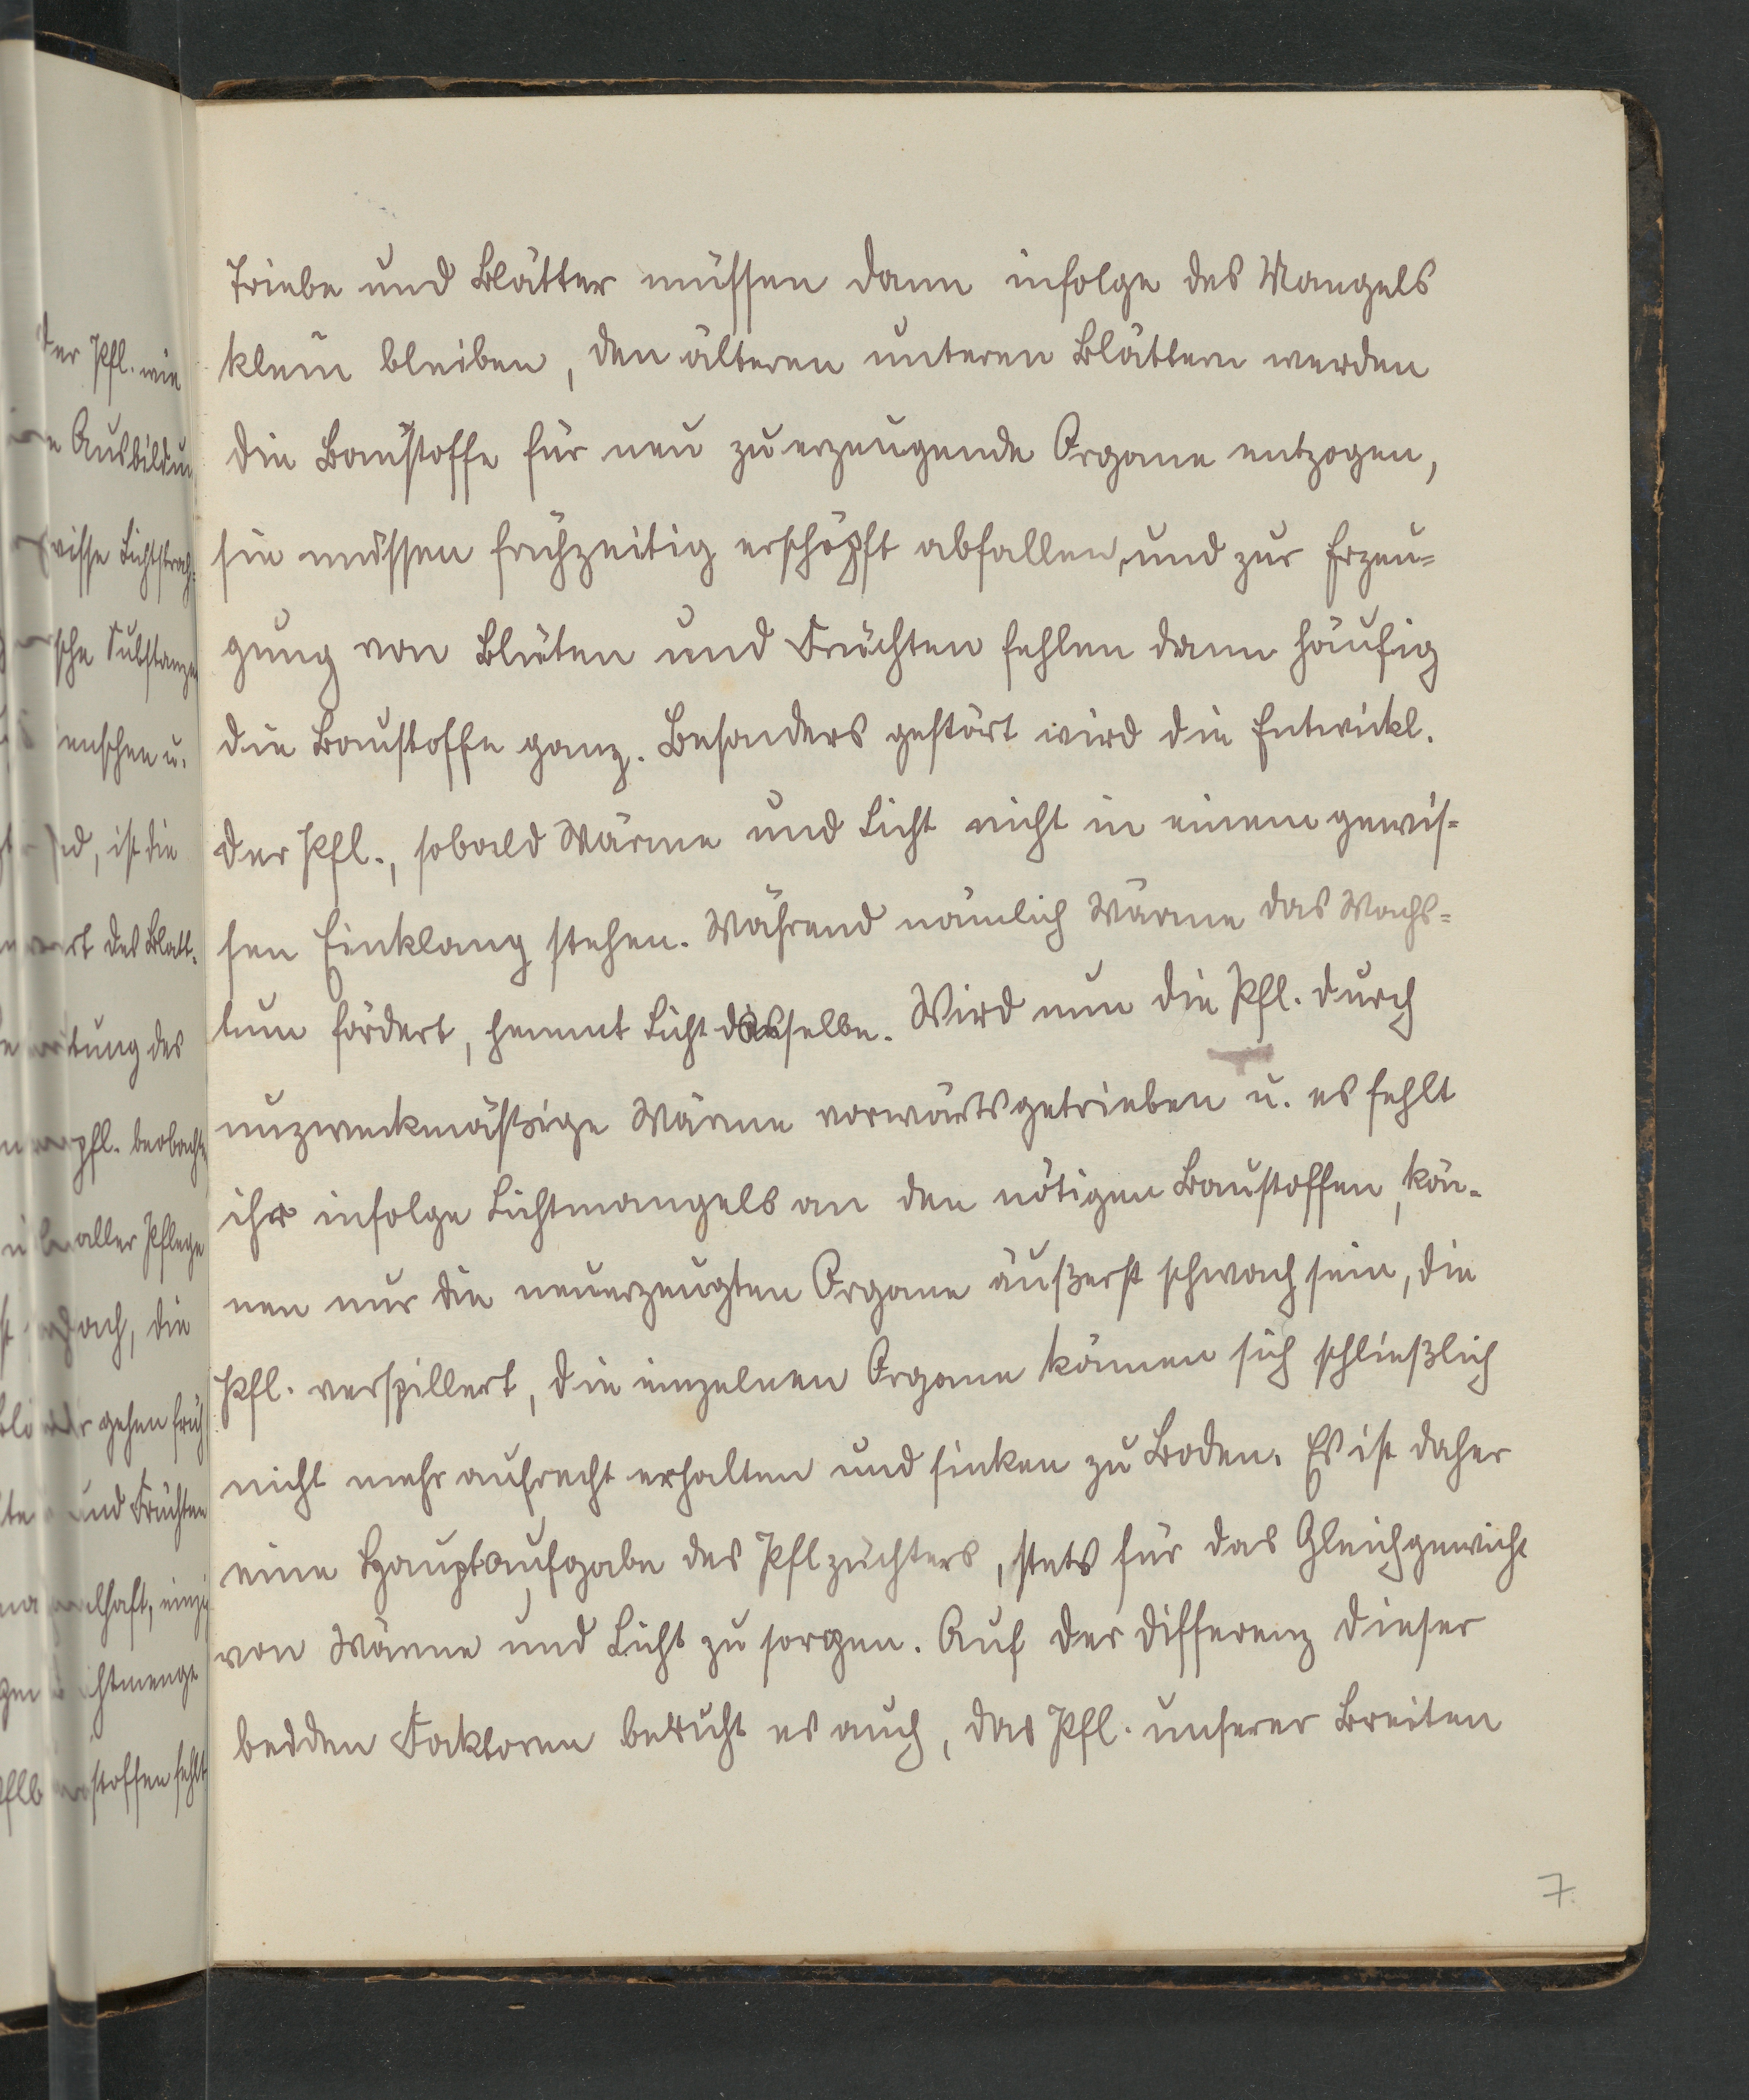 Triebe und Blätter müssen dann infolge des Mangels
klein bleiben, den älteren unteren Blättern werden
die Baustoffe für neu zu erzeugende Organe entzogen,
sie müssen frühzeitig erschöpft abfallen, und zur Erzeu=
gung von Blüten und Früchten fehlen dann häufig
die Baustoffe ganz. Besonders gestört wird die Entwickl.
der Pfl., sobald Wärme und Licht nicht in einem gewis=
sen Einklang stehen. Während nämlich Wärme das Wachs=
tum fördert, hemmt Licht dasselbe. Wird nun die Pfl. durch
unzweckmäßige Wärme vorwärtsgetrieben u. es fehlt
ihr infolge Lichtmangels an den nötigen Baustoffen, kön-
nen nur die neuerzeugten Organe äußerst schwach sein, die
Pfl. verspillert, die einzelnen Organe können sich schließlich
nicht mehr aufrecht erhalten und sinken zu Boden. Es ist daher
eine Hauptaufgabe des Pflzüchters, stets für das Gleichgewicht
von Wärme und Licht zu sorgen. Auf der Differenz dieser
beiden Faktoren beruht es auch, das Pfl. unserer Breiten
7.
der Pfl. wie
Ausbildun
Lichtstrah=
sche Substanzen
enschen u.
d, ist die
des Blatt-
tung des
pfl. beobachte
aller Pflege
ach, die
gehen früh
und Früchten
lhaft, einzi
chtmenge
stoffen fehlt